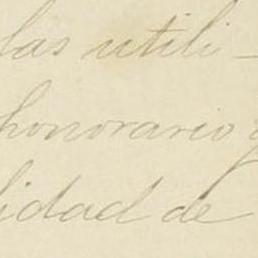 las utili-
honorario y
lidad de